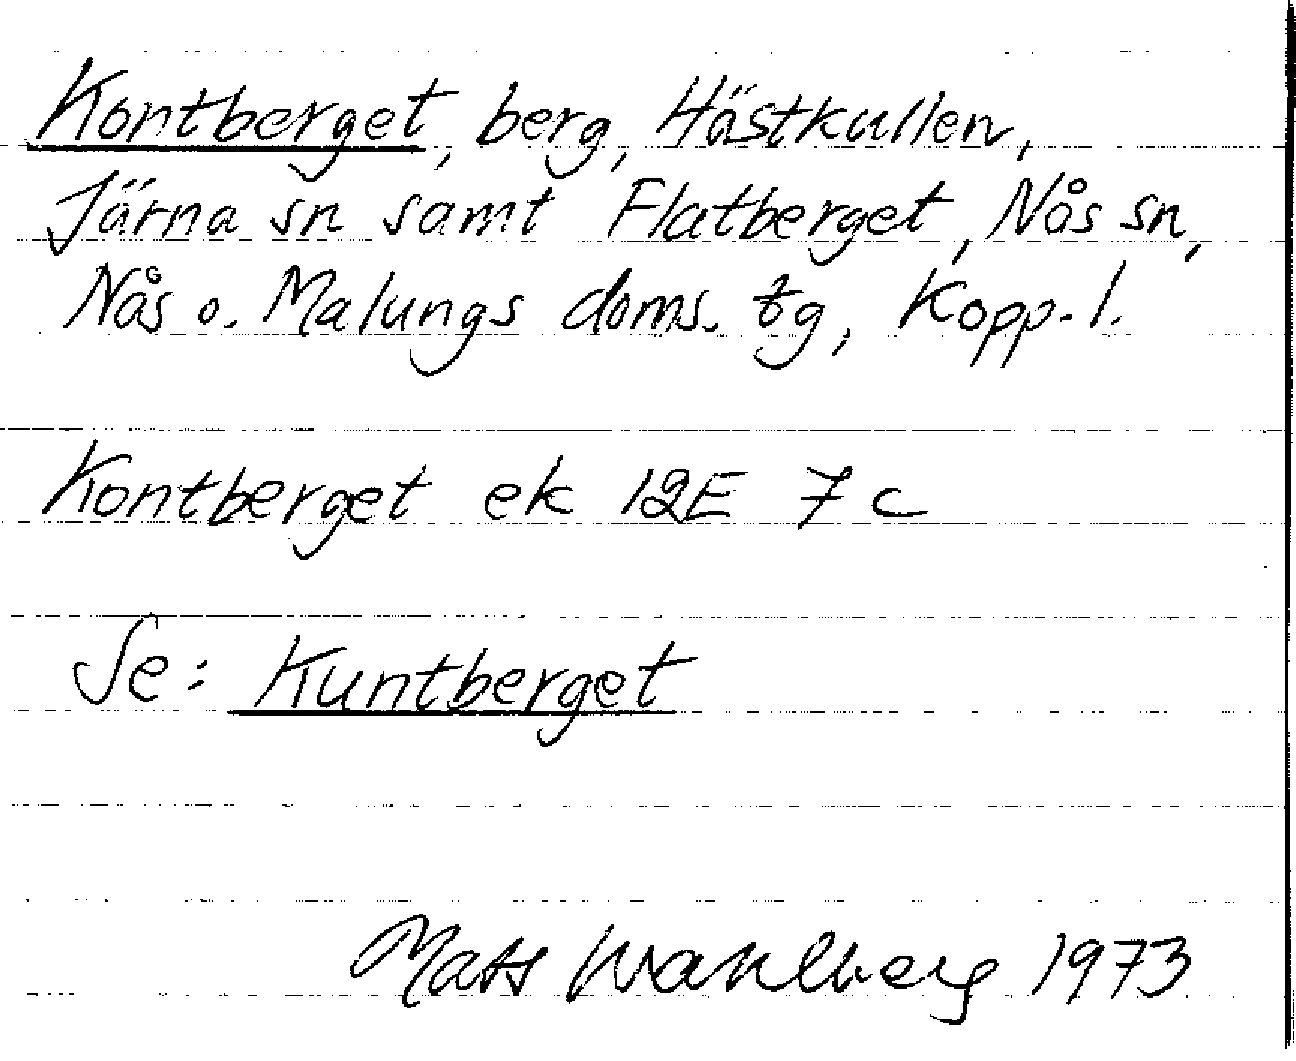 Kontberget, berg, Hästkullen,
Järna sn samt Flatberget, Nås sn,
Nås o. Malungs doms. tg, Kopp. l.
Kontberget ek 12E 7c
Se: Kuntberget
Mats Wahlberg 1973